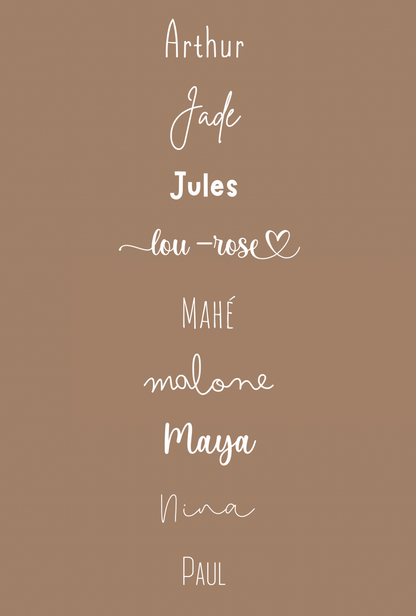 Arthur
Jade
Jules
lou-rose
MAHÉ
malone
Maya
Nina
PAUL